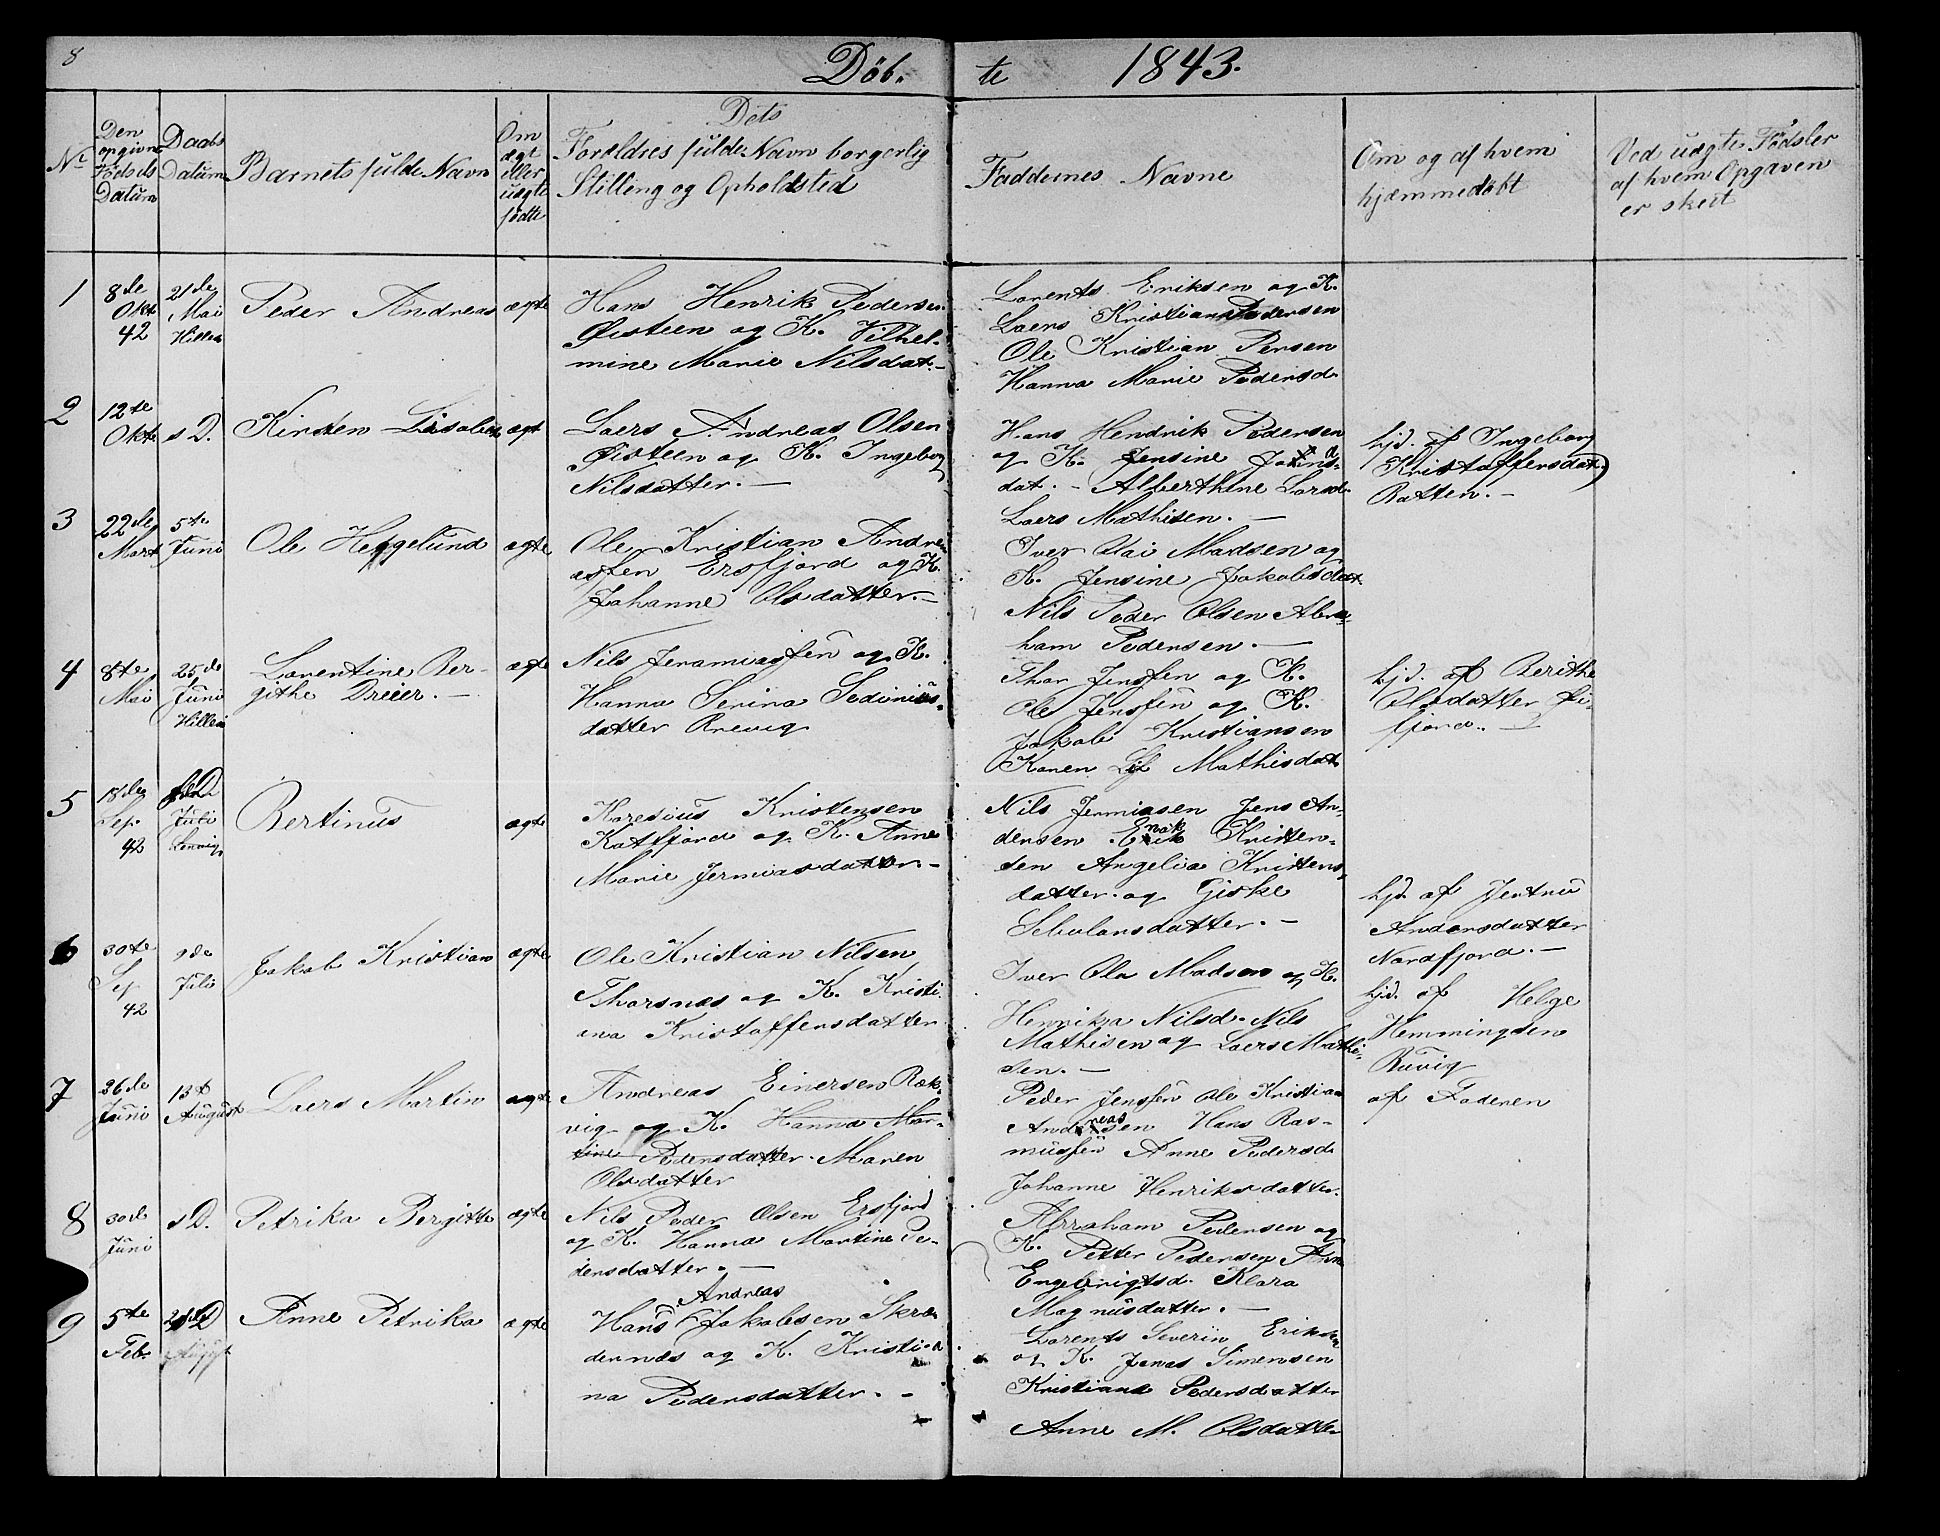 8
Døb. te 1843.
No
Den opgivne Fødsels Datum
Daabs Datum
Barnets fulde Navn
Om ægt eller uægte fødte
Dets
Forældres fulde Navn borgerlig
Stilling og Opholdsted
Faddernes Navne
Om og af hvem
hjæmmedøbt
Ved uægte Fødsler
af hvem Opgaven
er skeet
1
8de
Okt.
42
21de
Mai
Hillesø
Peder Andreas
ægte
Hans Henrik Pedersen
Øisteen og K. Vilhel-
mine Marie Nilsdat.-
Lorents Eriksen og K.
Laers Kristian Pedersen
Ole Kristian Persen
Hanna Marie Pedersd.
2
12te
Okt.
s D.
Kirsten Lisabet
ægt
Laers Andreas Olsen
Øisteen og K. Ingeborg
Nilsdatter.-
Hans Hendrik Pedersen
og K. Jensine
dat. - Alberthine Larsd.
Laers Mathisen.-
hjd. af Ingeborg
Kristoffersdat.
Batten.-
3
22de
Mart
5te
Juni
Ole Heggelund
ægte
Ole Kristian Andre-
assen Ersfjord og K.
Johanne Olsdatter.-
Iver Olai Madsen og
K. Jensine Jakobsdat.
Nils Peder Olsen Abra-
ham Pedersen.-
4
8te
Mai
25de
Juni
Hillesø
Lorentine Ber-
githe Dreier.-
ægte
Nils Jeramiassen og K.
Hanna Serina Sedenius-
datter Brevig
Thor Jenssen og K.
Ole Jenssen og K.
Jakob Kristiansen
Karen Mathisdat.
hjd. af Berithe
Olsdatter Ei-
fjord.-
5
18de
Sep.
42
Juli
Lenvig
Bertinus
ægte
Haresius Kristensen
Katfjord og K. Anne
Marie Jermiasdatter-
Nils Jermiasen Jens An-
dersen Enok Kristen-
sen Angelia Kristens-
datter og Giske
Sebulonsdatter.-
hjd. af
Andersdatter
Nordfjord.-
6
30te
Sep
42
9de
Juli
Jakob Kristian
ægte
Ole Kristian Nilsen
Thorsnæs og K. Kristi-
ana Kristoffersdatter
Iver Ola Madsen og K.
Henrika Nilsd. Nils
Mathisen og Laers Mathi-
sen.-
hjd. af Helge
Hemmingsen
Buvig
7
26de
Juni
13t
August
Laers Martin
ægte
Andreas Einersen Bak-
vig og K. Hanna Mar-
tine Pedersdatter. Maren
Olsdatter
Peder Jenssen Ole Kristian
Andreassen Hans Ras-
mussen Anne Pedersd.
Johanne Henriksdatter.
af Faderen
8
30de
Juni
s D.
Petrika Bergitte
ægte
Nils Peder Olsen Ersfjord
og K. Hanna Martine Pe-
dersdatter.-
Abraham Pedersen og
K. Petter Pedersen Ane
Engebrigtsd. Klara
Magnusdatter.-
9
5te
Feb.
August
Anne Petrika
ægte
Andreas
Hans Jakobsen Skræ-
dernæs og K. Kristi-a
na Pedersdatter.-
Lorents Severin Eriksen
og K. Jonas Simensen
Kristiane Pedersdatter
Anne M. Olsdatter